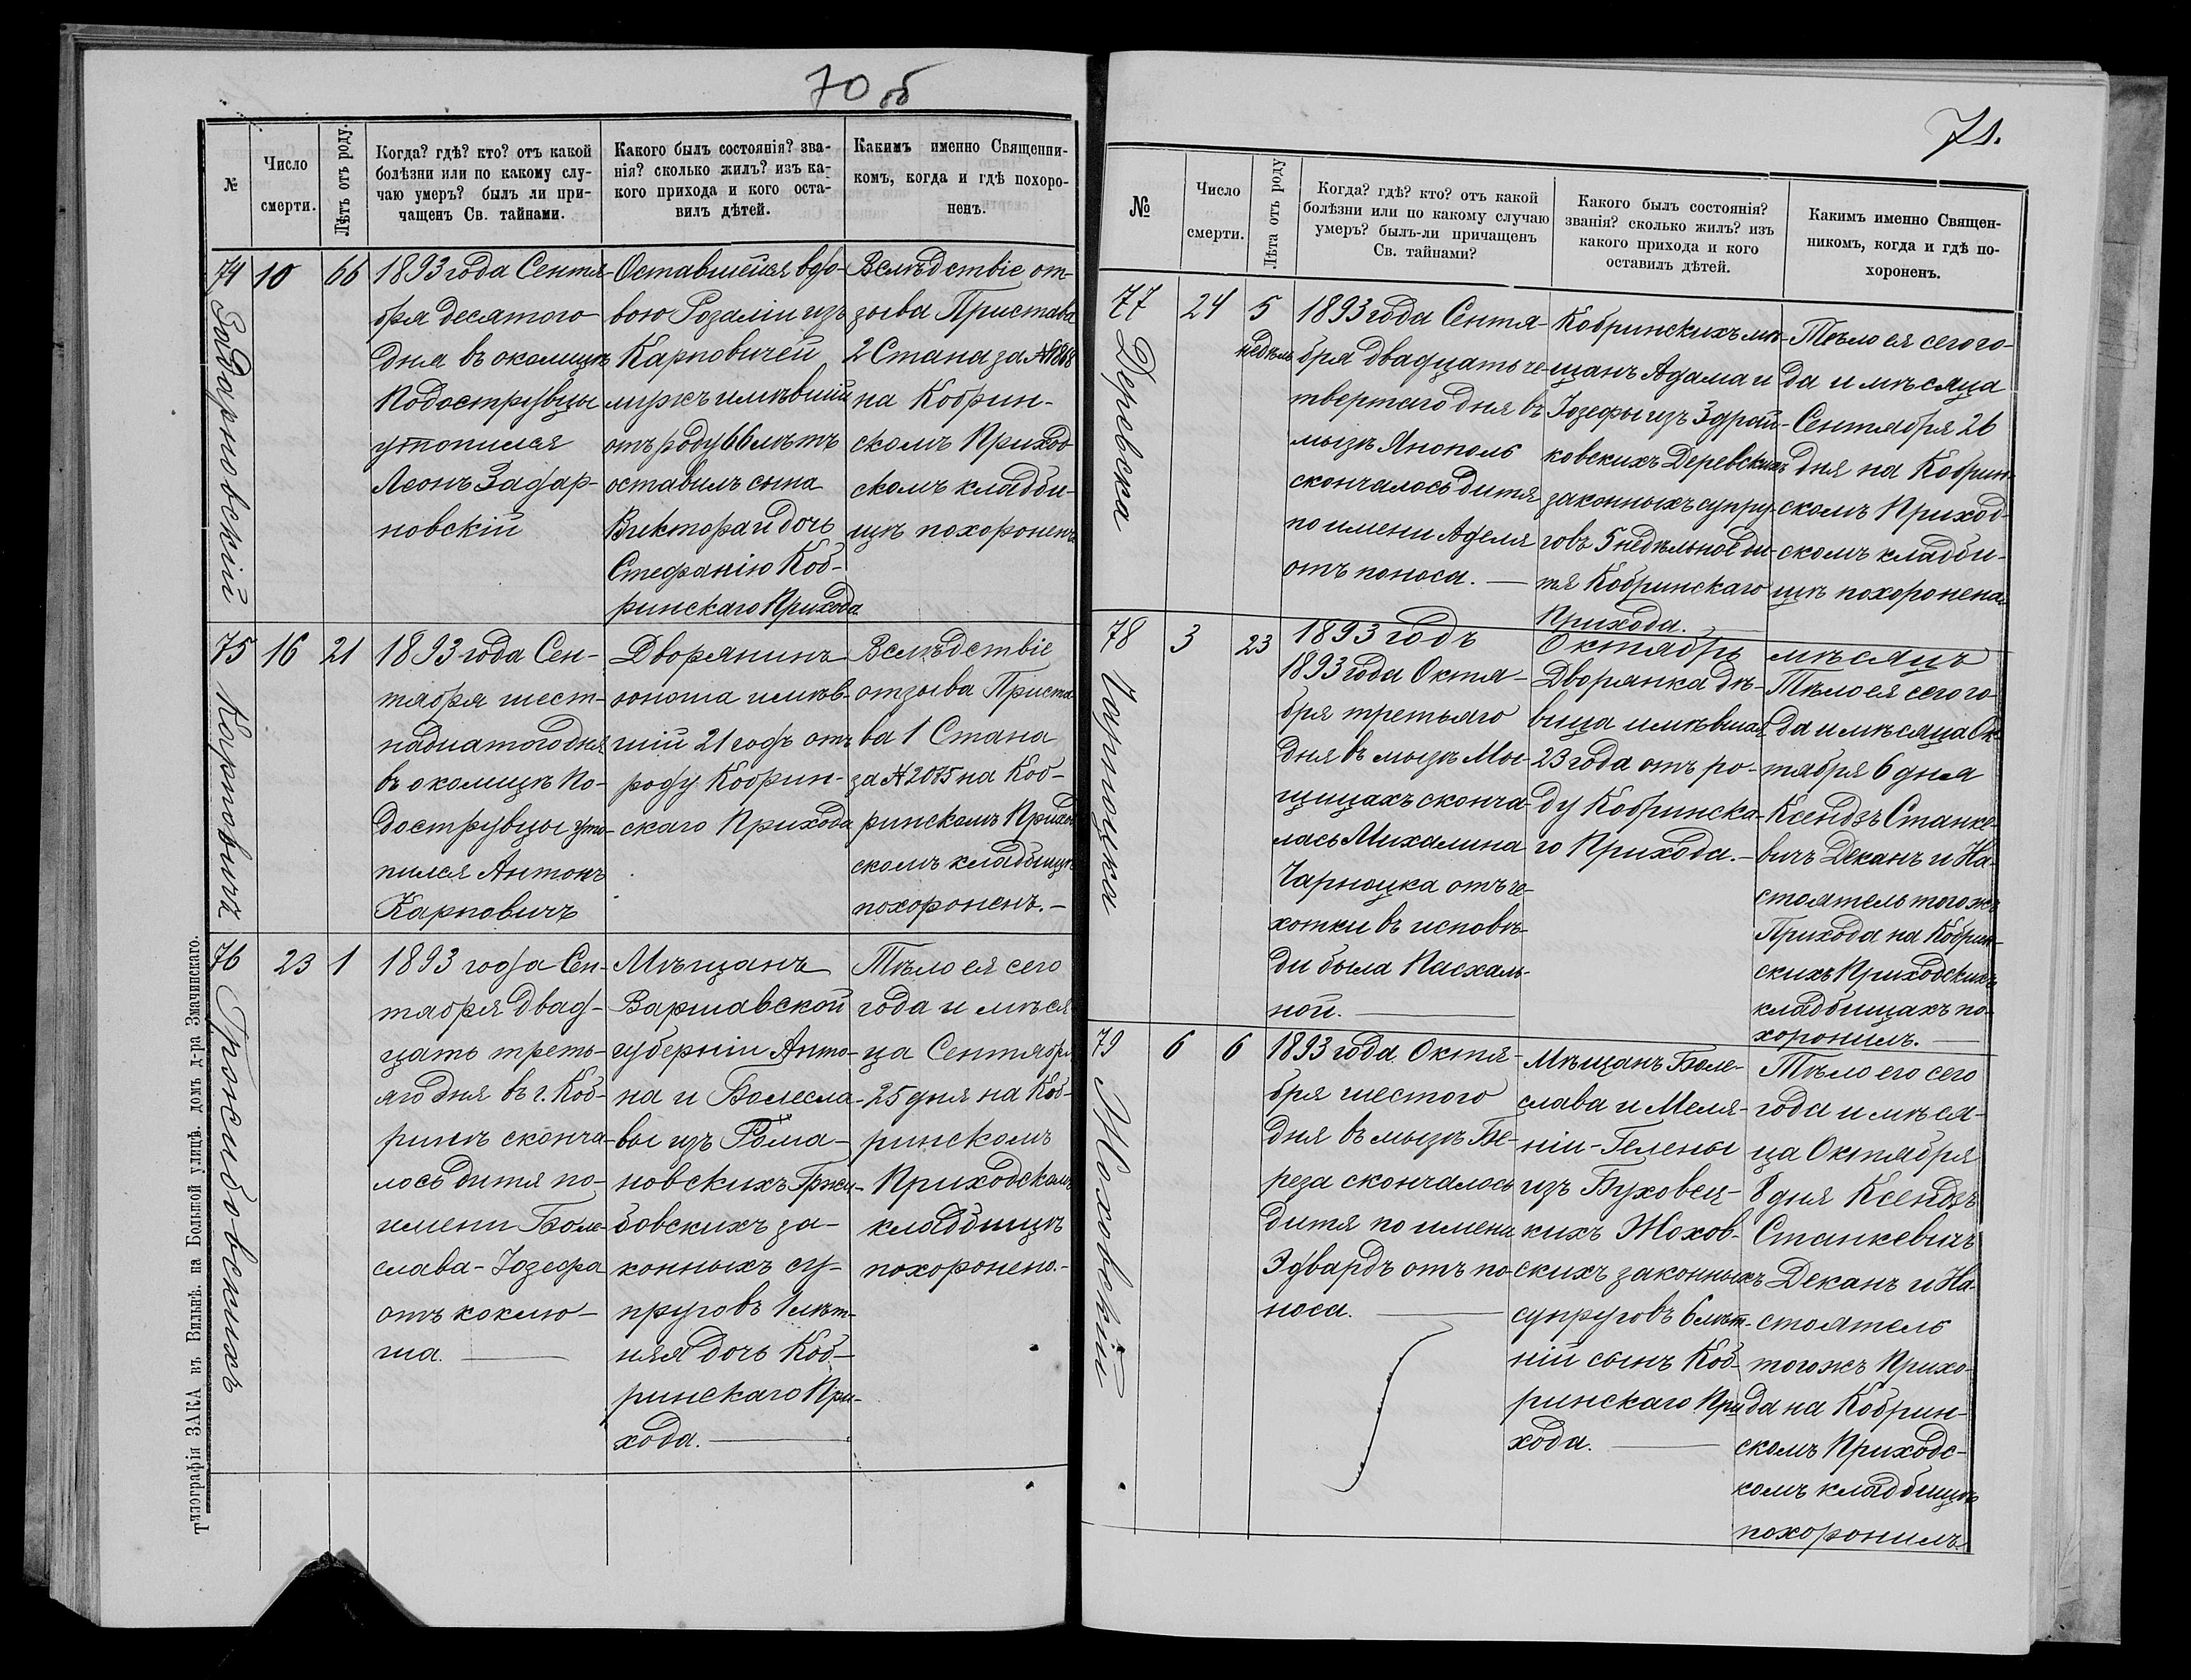 70 об
№
Число
смерти.
Лѣтъ отъ роду.
Когда? гдѣ? кто? отъ какой
болѣзни или по какому слу-
чаю умеръ? былъ ли при-
чащенъ Св. тайнами.
Какого былъ состоянія? зва-
нія? сколько жилъ? изъ ка-
кого прихода и кого оста-
вилъ дѣтей.
Какимъ именно Священни-
комъ, когда и гдѣ похоро-
ненъ.
74
Задарновскій
10
66
1893 года Сентя-
бря десятого
дня въ околицѣ
Подострувцы
утопился
Леонъ Задар-
новскій
Оставшейся вдо-
вою Розаліи изъ
Карповичей
мужъ имѣвшій
отъ роду 66 лѣтъ
оставилъ сына
Виктора и дочь
Стефанію Коб-
ринскаго Прихода
Вслѣдствіе от-
зыва Пристава
2 Стана за №
на Кобрин-
скомъ Приход-
скомъ кладби-
щѣ похороненъ
75
Карповичъ
16
21
1893 года Сен-
тября шест-
надцатого дня
въ околицѣ По-
дострувцы уто-
пился Антонъ
Карповичъ
Дворянинъ
юноша имѣв-
шій 21 годъ отъ
роду Кобрин-
скаго Прихода
Вслѣдствіе
отзыва Приста-
ва 1 Стана
за № 2075 на Коб-
ринскомъ Приход-
скомъ кладбищѣ
похороненъ.–
76
Гржибовскихъ
23
1
1893 года Сен-
тября двад-
цать треть-
яго дня въ г. Коб-
ринѣ сконча-
лось дитя по-
имени Боле-
слава-Іозефа
отъ коклю-
ша.
Мѣщанъ
Варшавской
губерніи Анто-
на и Болесла-
вы изъ Рома-
новскихъ Гржи-
бовскихъ за-
конныхъ су-
пруговъ 1 лѣт-
няя дочь Коб-
ринскаго При-
хода.
Тѣло ея сего
года и мѣся-
ца Сентября
25 дня на Коб-
ринскомъ
Приходскомъ
кладбищѣ
похоронено.–
Типографія ЗАКА въ Вильнѣ. на Большой улицѣ. домъ д-ра Змачинскаго.
71.
№
Число
смерти.
Лѣта отъ роду
Когда? гдѣ? кто? отъ какой
болѣзни или по какому случаю
умеръ? былъ-ли причащенъ
Св. тайнами?
Какого былъ состоянія?
званія? сколько жилъ? изъ
какого прихода и кого
оставилъ дѣтей.
Какимъ именно Священ-
никомъ, когда и гдѣ по-
хороненъ.
77
Деревска
24
5
недѣль
1893 года Сентя-
бря двадцать че-
твертаго дня въ
мызѣ Янополь
скончалось дитя
по имени Аделя
отъ поноса.–
Кобринскихъ мѣ-
щанъ Адама и
Іозефы изъ Здрой-
ковскихъ Деревскихъ
законныхъ супру-
говъ 5 недѣльное ди-
тя Кобринскаго
Прихода.
Тѣло ея сего го-
да и мѣсяца
Сентября 26
дня на Кобрин-
скомъ Приход-
скомъ кладби-
щѣ похоронена
1893 годъ Октябрь мѣсяцъ
78
Чарноцка
3
23
1893 года Октя-
бря третьяго
дня въ мызѣ Мы-
щицахъ сконча-
лась Михалина
Чарноцка отъ че-
хотки въ исповѣ-
ди была Пасхаль-
ной.
Дворянка дѣ-
вица имѣвшая
23 года отъ ро-
ду Кобринска-
го Прихода.–
Тѣло ея сего го-
да и мѣсяца Ок-
тября 6 дня
Ксендзъ Станке-
вичъ Деканъ и На-
стоятель того жъ
Прихода на Кобрин-
скихъ Приходскихъ
кладбищахъ по-
хоронилъ.
79
Жоховскій
6
6
1893 года Октя-
бря шестого
дня въ мызѣ Бе-
реза скончалось
дитя по имени
Эдвардъ отъ по-
носа.
Мѣщанъ Боле-
слава и Меля-
ніи-Гелены
изъ Буховец-
кихъ Жохов-
скихъ законныхъ
супруговъ 6 лѣт-
ній сынъ Коб-
ринскаго При-
хода.
Тѣло его сего
года и мѣся-
ца Октября
8 дня Ксендзъ
Станкевичъ
Деканъ и На-
стоятель
того жъ Прихо-
да на Кобрин-
скомъ Приходс-
комъ кладбищѣ
похоронилъ.